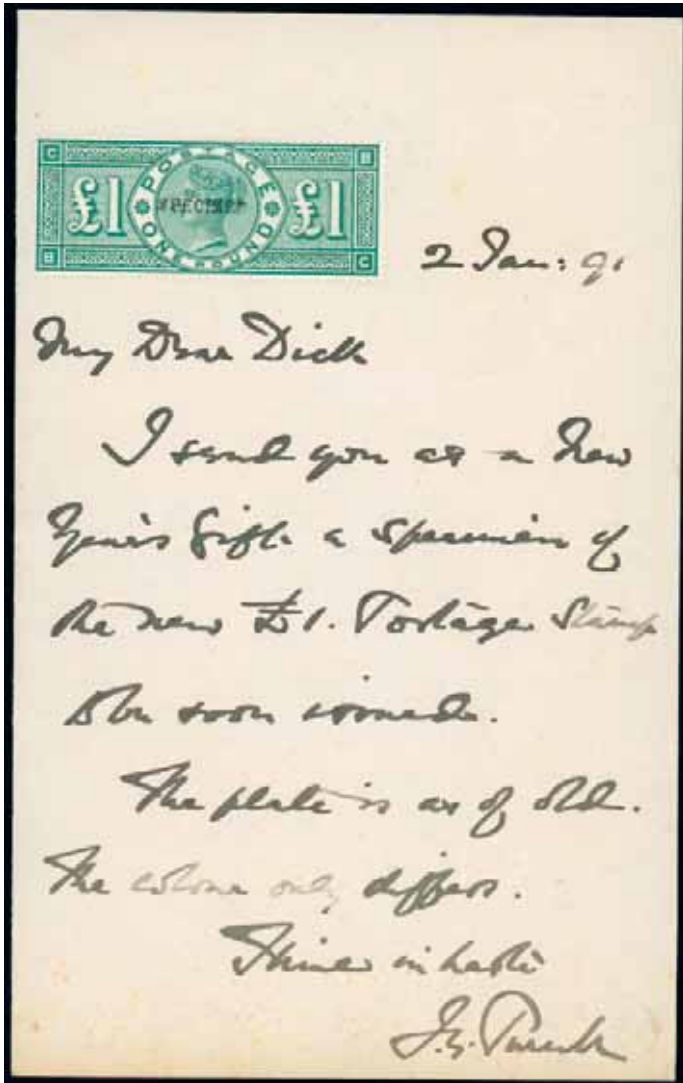 C B
POSTAGE
£1 SPECIMEN £1
ONE POUND
B C
2 Jan: 91
My Dear Dick
I send you as a New
Year's Gift a specimen of
the new £1. Postage Stamp
to be soon issued.
The plate is as of old.
The colour only differs.
Thine in haste
J.G.